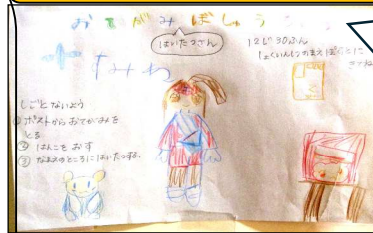 おてがみぼしゅう
はいたつさん
12じ30ぷん
しょくいんしつのまえ
すみれ
しごとないよう
①ポストからおてがみを
とる
②はんこをおす
③なまえのところにはいたつする。